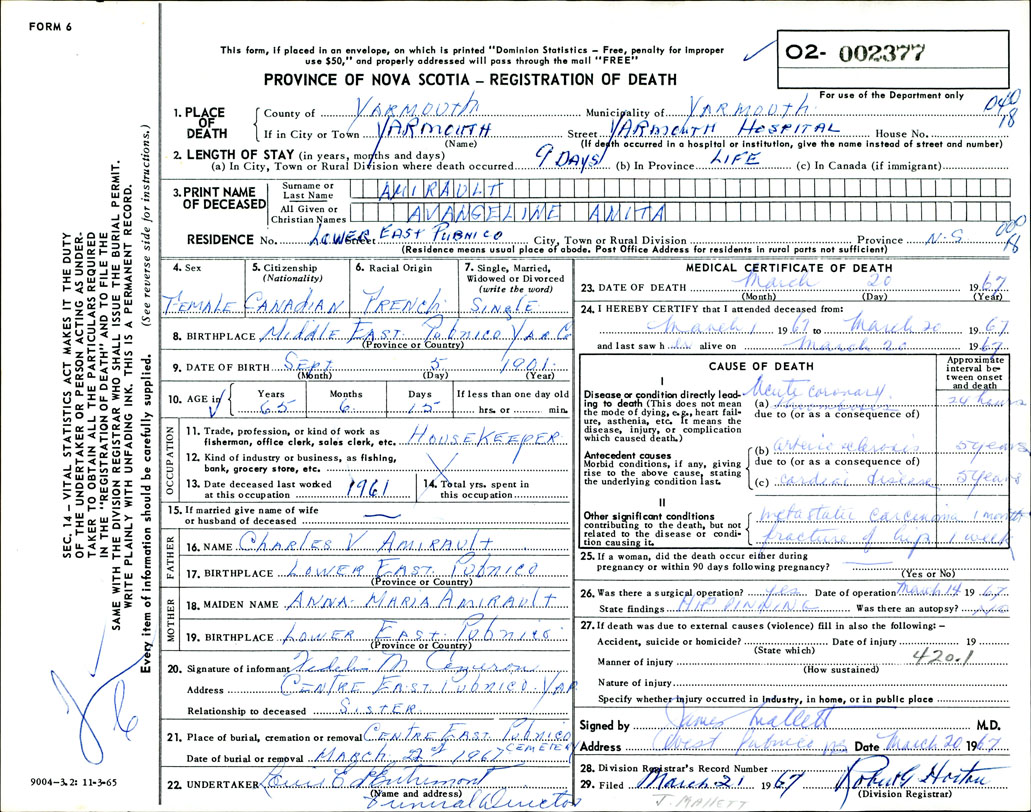 FORM 6
This form, if placed in an envelope, on which is printed "Dominion Statistics – Free, penalty for improper
use $50," and properly addressed will pass through the mail "FREE"
PROVINCE OF NOVA SCOTIA – REGISTRATION OF DEATH
02- 002377
For use of the Department only
040
18
1. PLACE OF DEATH
County of YARMOUTH Municipality of YARMOUTH
If in City or Town YARMOUTH Street YARMOUTH HOSPITAL House No.
(Name) (If death occurred in a hospital or institution, give the name instead of street and number)
2. LENGTH OF STAY (in years, months and days)
(a) In City, Town or Rural Division where death occurred 9 DAYS (b) In Province LIFE (c) In Canada (if immigrant)
3. PRINT NAME OF DECEASED
Surname or Last Name AMIRAULT
All Given or Christian Names AVANGELINE ANITA
RESIDENCE No. Street LOWER EAST PUBNICO City, Town or Rural Division Province N.S.
(Residence means usual place of abode. Post Office Address for residents in rural parts not sufficient)
000
18
4. Sex
FEMALE
5. Citizenship (Nationality)
CANADIAN
6. Racial Origin
FRENCH
7. Single, Married, Widowed or Divorced (write the word)
SINGLE
8. BIRTHPLACE MIDDLE EAST PUBNICO YAR CO
(Province or Country)
9. DATE OF BIRTH SEPT 5 1901
(Month) (Day) (Year)
10. AGE in Years 65 Months 6 Days 15 If less than one day old hrs. or min.
OCCUPATION
11. Trade, profession, or kind of work as fisherman, office clerk, sales clerk, etc. HOUSEKEEPER
12. Kind of industry or business, as fishing, bank, grocery store, etc.
13. Date deceased last worked at this occupation 1961
14. Total yrs. spent in this occupation
15. If married give name of wife or husband of deceased —
FATHER
16. NAME CHARLES V AMIRAULT
17. BIRTHPLACE LOWER EAST PUBNICO
(Province or Country)
MOTHER
18. MAIDEN NAME ANNA MARIA AMIRAULT
19. BIRTHPLACE LOWER EAST PUBNICO
(Province or Country)
20. Signature of informant M
Address CENTRE EAST PUBNICO YAR
Relationship to deceased SISTER
21. Place of burial, cremation or removal CENTRE EAST PUBNICO CEMETERY
Date of burial or removal MARCH 1967
22. UNDERTAKER Louis E d'Entremont
(Name and address)
Funeral Director
MEDICAL CERTIFICATE OF DEATH
23. DATE OF DEATH March 20 1967
(Month) (Day) (Year)
24. I HEREBY CERTIFY that I attended deceased from:
March 1 1967 to March 20 1967
and last saw her alive on March 20 1967
CAUSE OF DEATH
Approximate interval between onset and death
I
Disease or condition directly leading to death (This does not mean the mode of dying, e.g., heart failure, asthenia, etc. It means the disease, injury, or complication which caused death.)
(a) Acute coronary 24 hours
due to (or as a consequence of)
Antecedent causes
Morbid conditions, if any, giving rise to the above cause, stating the underlying condition last.
(b) arterio sclerosis 5 years
due to (or as a consequence of)
(c) cardiac disease 5 years
II
Other significant conditions
contributing to the death, but not related to the disease or condition causing it.
metastatic carcinoma 1 month
fracture of hip 1 week
25. If a woman, did the death occur either during
pregnancy or within 90 days following pregnancy?
(Yes or No)
26. Was there a surgical operation? yes Date of operation March 14 1967
State findings HIP PINNING Was there an autopsy? no
27. If death was due to external causes (violence) fill in also the following: –
Accident, suicide or homicide? Date of injury 19
(State which)
420.1
Manner of injury
(How sustained)
Nature of injury
Specify whether injury occurred in industry, in home, or in public place
Signed by James Mallett M.D.
Address West Pubnico NS Date March 20 1967
28. Division Registrar's Record Number
29. Filed March 21 1967 Robert G Horton
(Division Registrar)
J. MALLETT
SEC. 14 – VITAL STATISTICS ACT MAKES IT THE DUTY
OF THE UNDERTAKER OR PERSON ACTING AS UNDER-
TAKER TO OBTAIN ALL THE PARTICULARS REQUIRED
IN THE "REGISTRATION OF DEATH" AND TO FILE THE
SAME WITH THE DIVISION REGISTRAR WHO SHALL ISSUE THE BURIAL PERMIT.
WRITE PLAINLY WITH UNFADING INK. THIS IS A PERMANENT RECORD.
Every item of information should be carefully supplied. (See reverse side for instructions.)
9004–3.2: 11-3-65